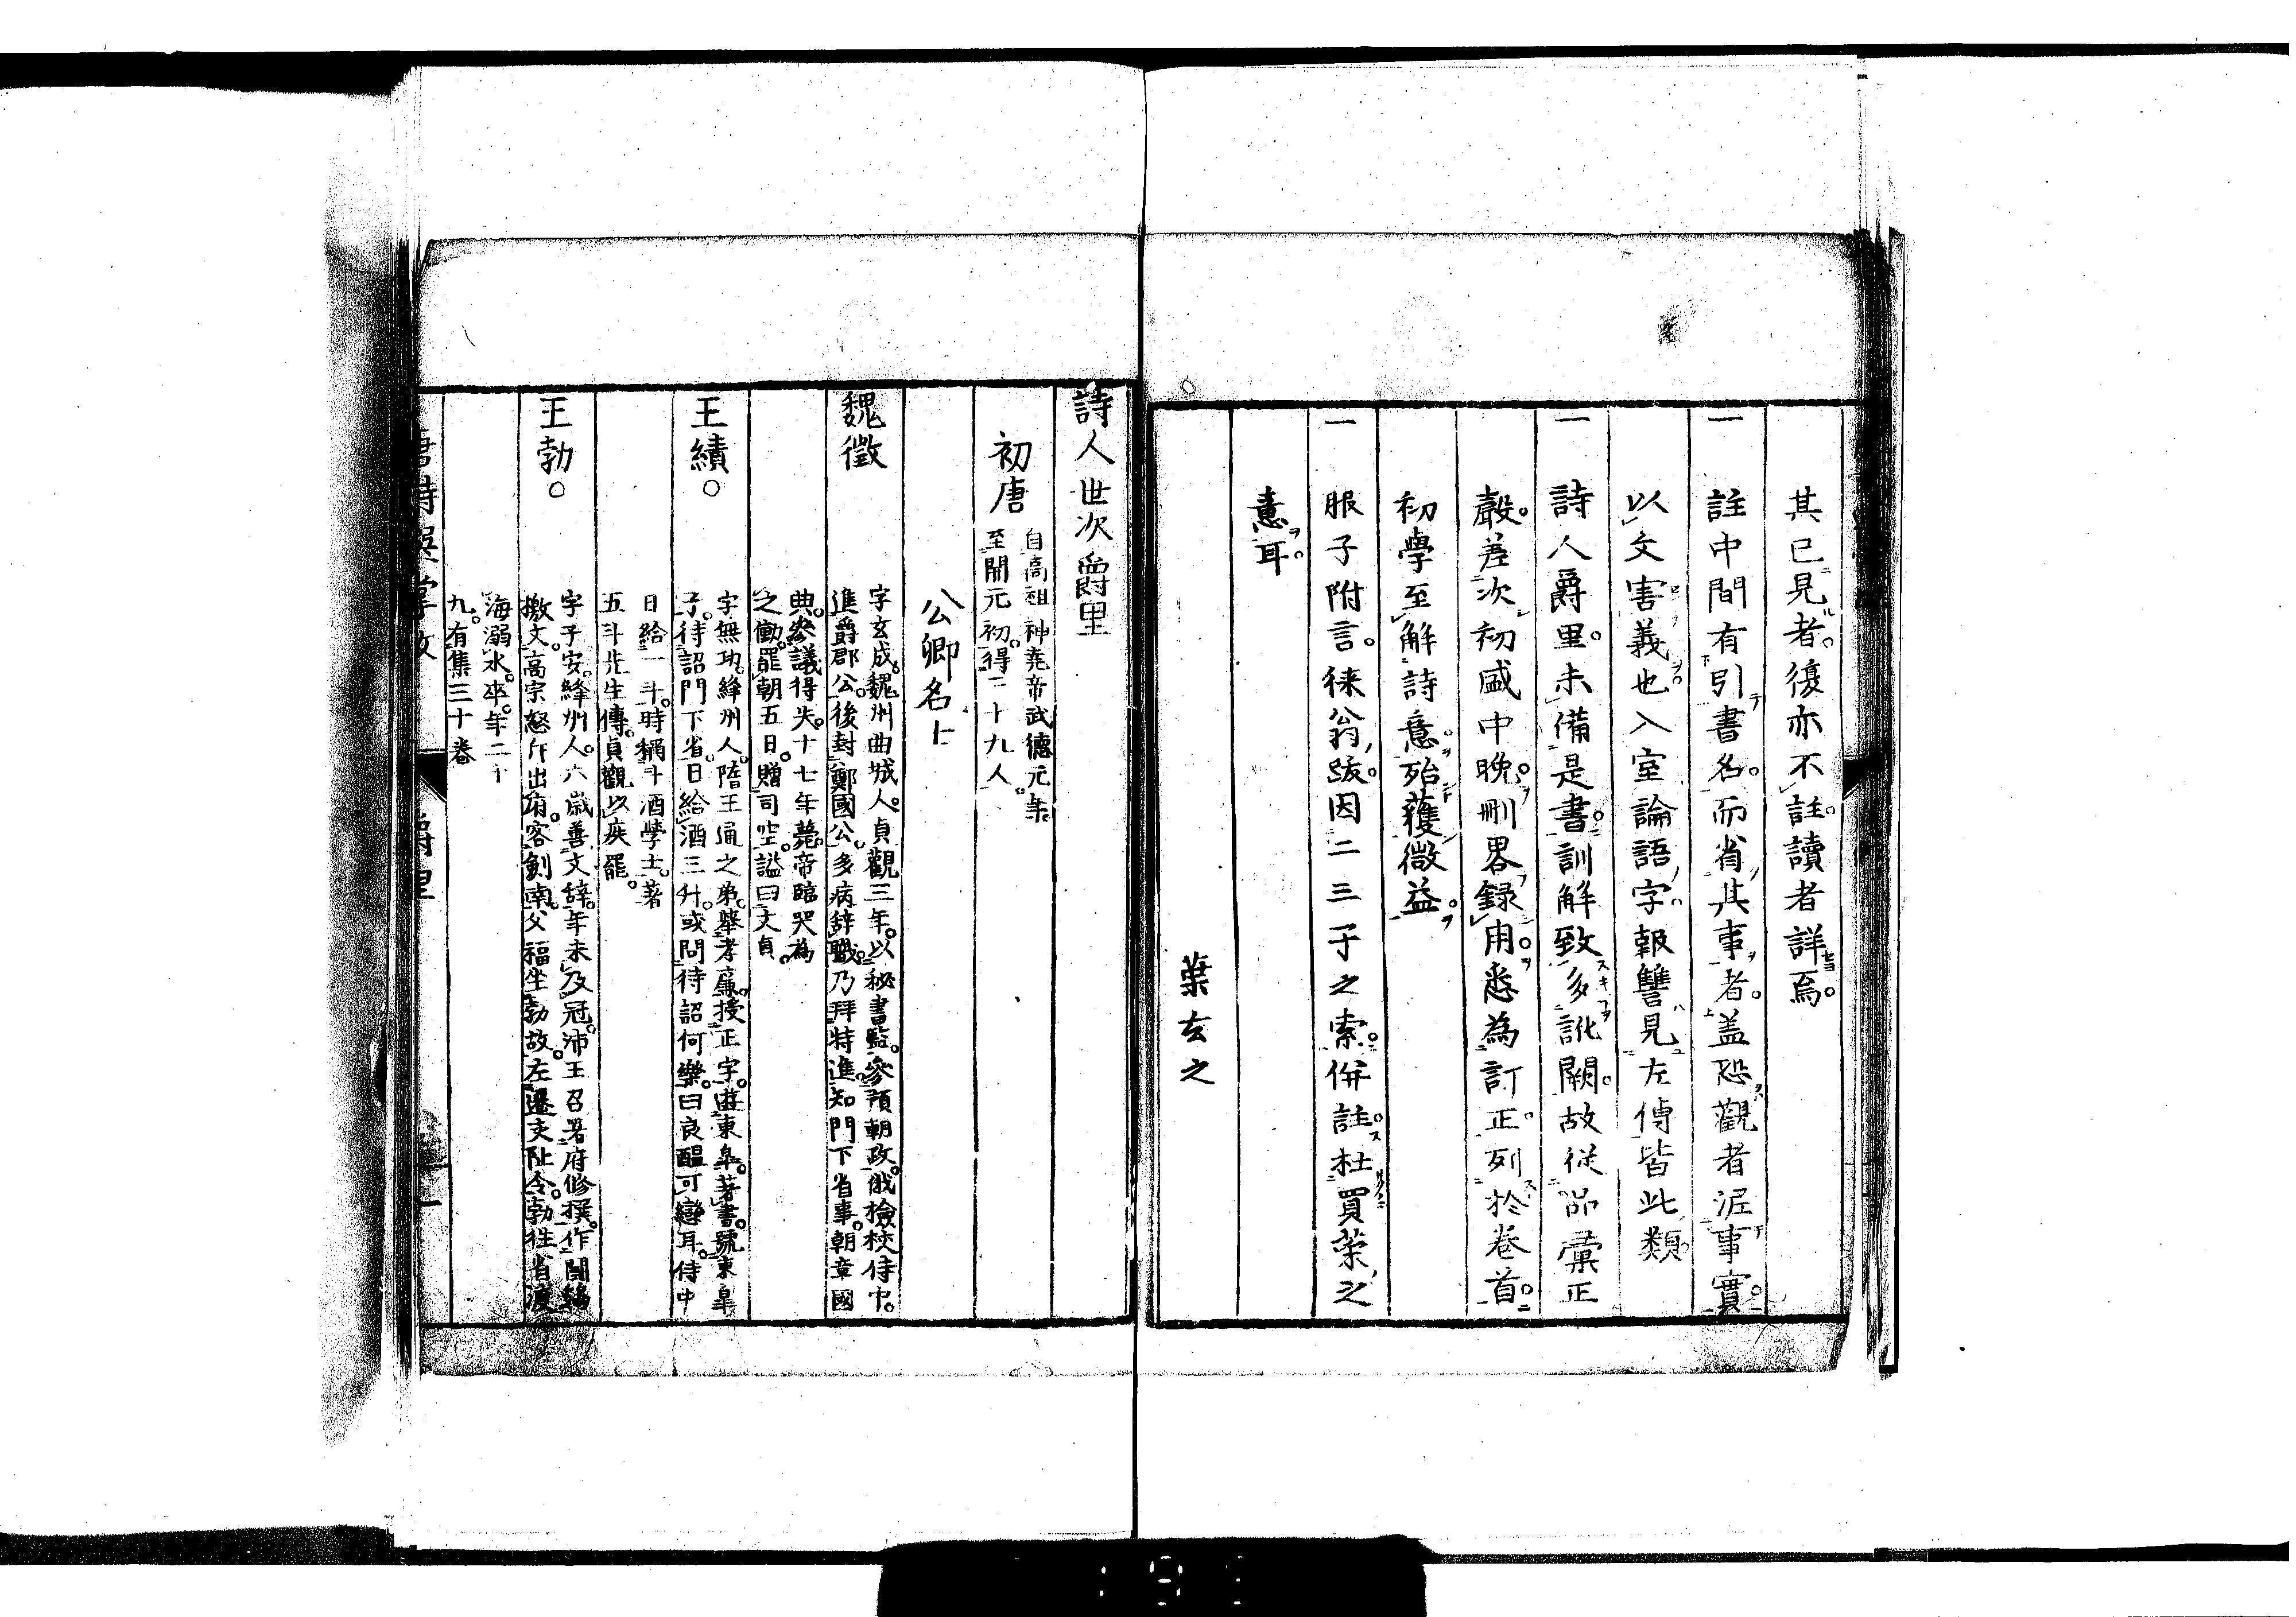 其已見者。後亦不註。讀者詳焉。
一　註中間有引書名。而省其事者。盖恐觀者泥事實。
以文害義也入室論語字報讐見左傳皆此類
一　詩人爵里。未備是書。訓解致多訛闕。故従品彙正
聲。差次初盛中晩。刪畧録用。悉為訂正。列於卷首。
初學至解詩意。殆獲微益。
一　服子附言。徠翁跋。因二三子之索。併註。杜買榮之
意耳。
葉玄之
詩人世次爵里
初唐
自高祖神堯帝武德元年。
至開元初。得二十九人。
公卿名士
魏徵
字玄成。魏州曲城人。貞觀三年。以秘書監。參預朝政。俄檢校侍中。
進爵郡公。後封鄭國公。多病辭職。乃拜特進。知門下省事。朝章國
典。參議得失。十七年薨。帝臨哭為
之慟。罷朝五日。贈司空。謚曰文貞。
王績。
字無功。絳州人。隋王通之弟。舉孝廉。授正字。遊東皐。著書。號東皐
子。待詔門下省。日給酒三升。或問待詔何樂。曰良醞可戀耳。侍中
日給一斗。時稱斗酒學士。著
五斗先生傳。貞觀以疾罷。
王勃。
字子安。絳州人。六歲善文辞。年未及冠。沛王召署府修撰。作鬪雞
檄文。高宗怒斥出府。客劍南。父福坐勃故。左遷交阯令。勃往省渡
海溺水。卒年二十
九。有集三十卷